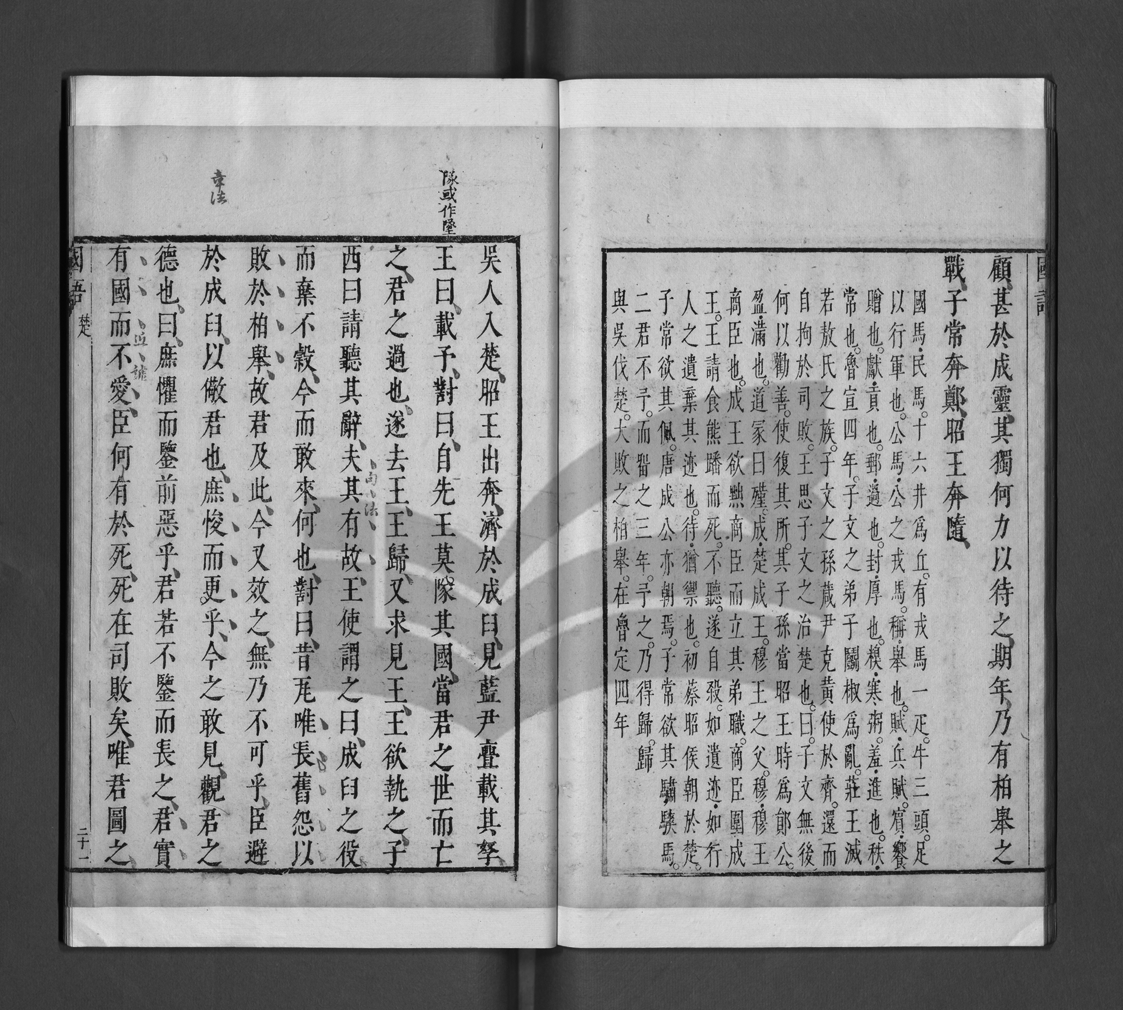 國語
顧甚於成靈其獨何力以待之期年乃有柏舉之
戰子常奔鄭昭王奔隨
國馬民馬十六井爲丘有戎馬一疋牛三頭足
以行軍也公馬公之戎馬稱舉也賦兵賦賓饗
贈也獻貢也郵過也封厚也糗寒粥羞進也秩
常也魯宣四年子文之弟子鬬椒爲亂莊王滅
若敖氏之族子文之孫葴尹克黃使於齊還而
自拘於司敗王思子文之治楚也曰子文無後
何以勸善使復其所其子孫當昭王時爲鄖公
盈滿也道冢曰殣成楚成王穆王之父穆穆王
商臣也成王欲黜商臣而立其弟職商臣圍成
王王請食熊蹯而死不聽遂自殺如遺迹如行
人之遺棄其迹也待猶禦也初蔡昭侯朝於楚
子常欲其佩唐成公亦朝焉子常欲其驌騻馬
二君不予而畱之三年予之乃得歸歸
與吳伐楚大敗之柏舉在魯定四年
隊或作墜
吳人入楚昭王出奔濟於成臼見藍尹亹載其孥
王曰載予對曰自先王莫隊其國當君之世而亡
之君之過也遂去王王歸又求見王王欲執之子
西曰請聽其辭夫其有故王使謂之曰成臼之役
而棄不穀今而敢來何也對曰昔瓦唯長舊怨以
敗於柏舉故君及此今又效之無乃不可乎臣避
章法
於成臼以儆君也庶悛而更乎今之敢見觀君之
德也曰庶懼而鑒前惡乎君若不鑒而長之君實
有國而不愛臣何有於死死在司敗矣唯君圖之
國語 楚 二十一